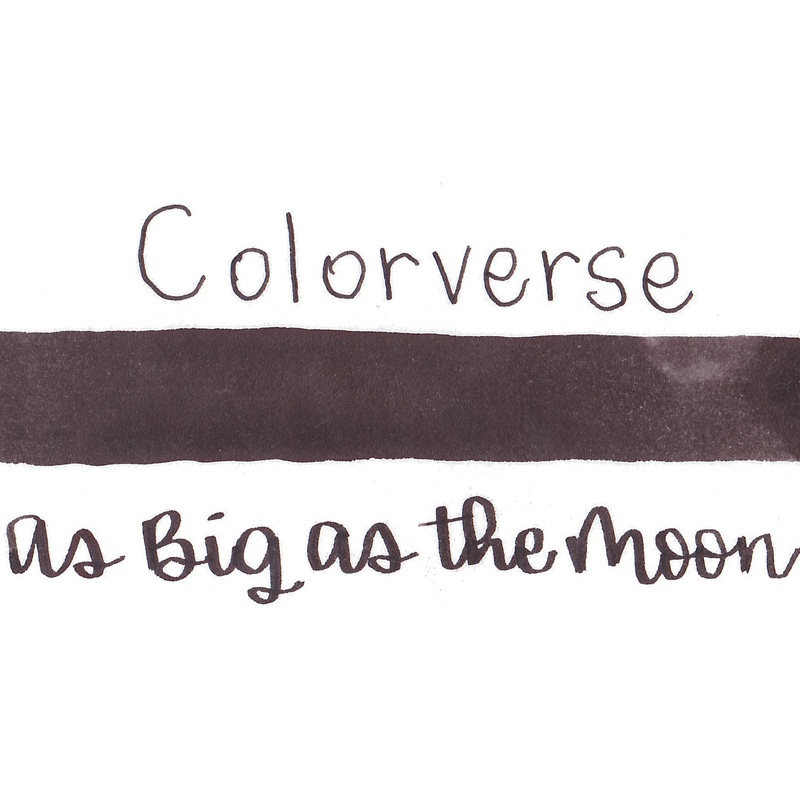 Colorverse
as Big as the Moon